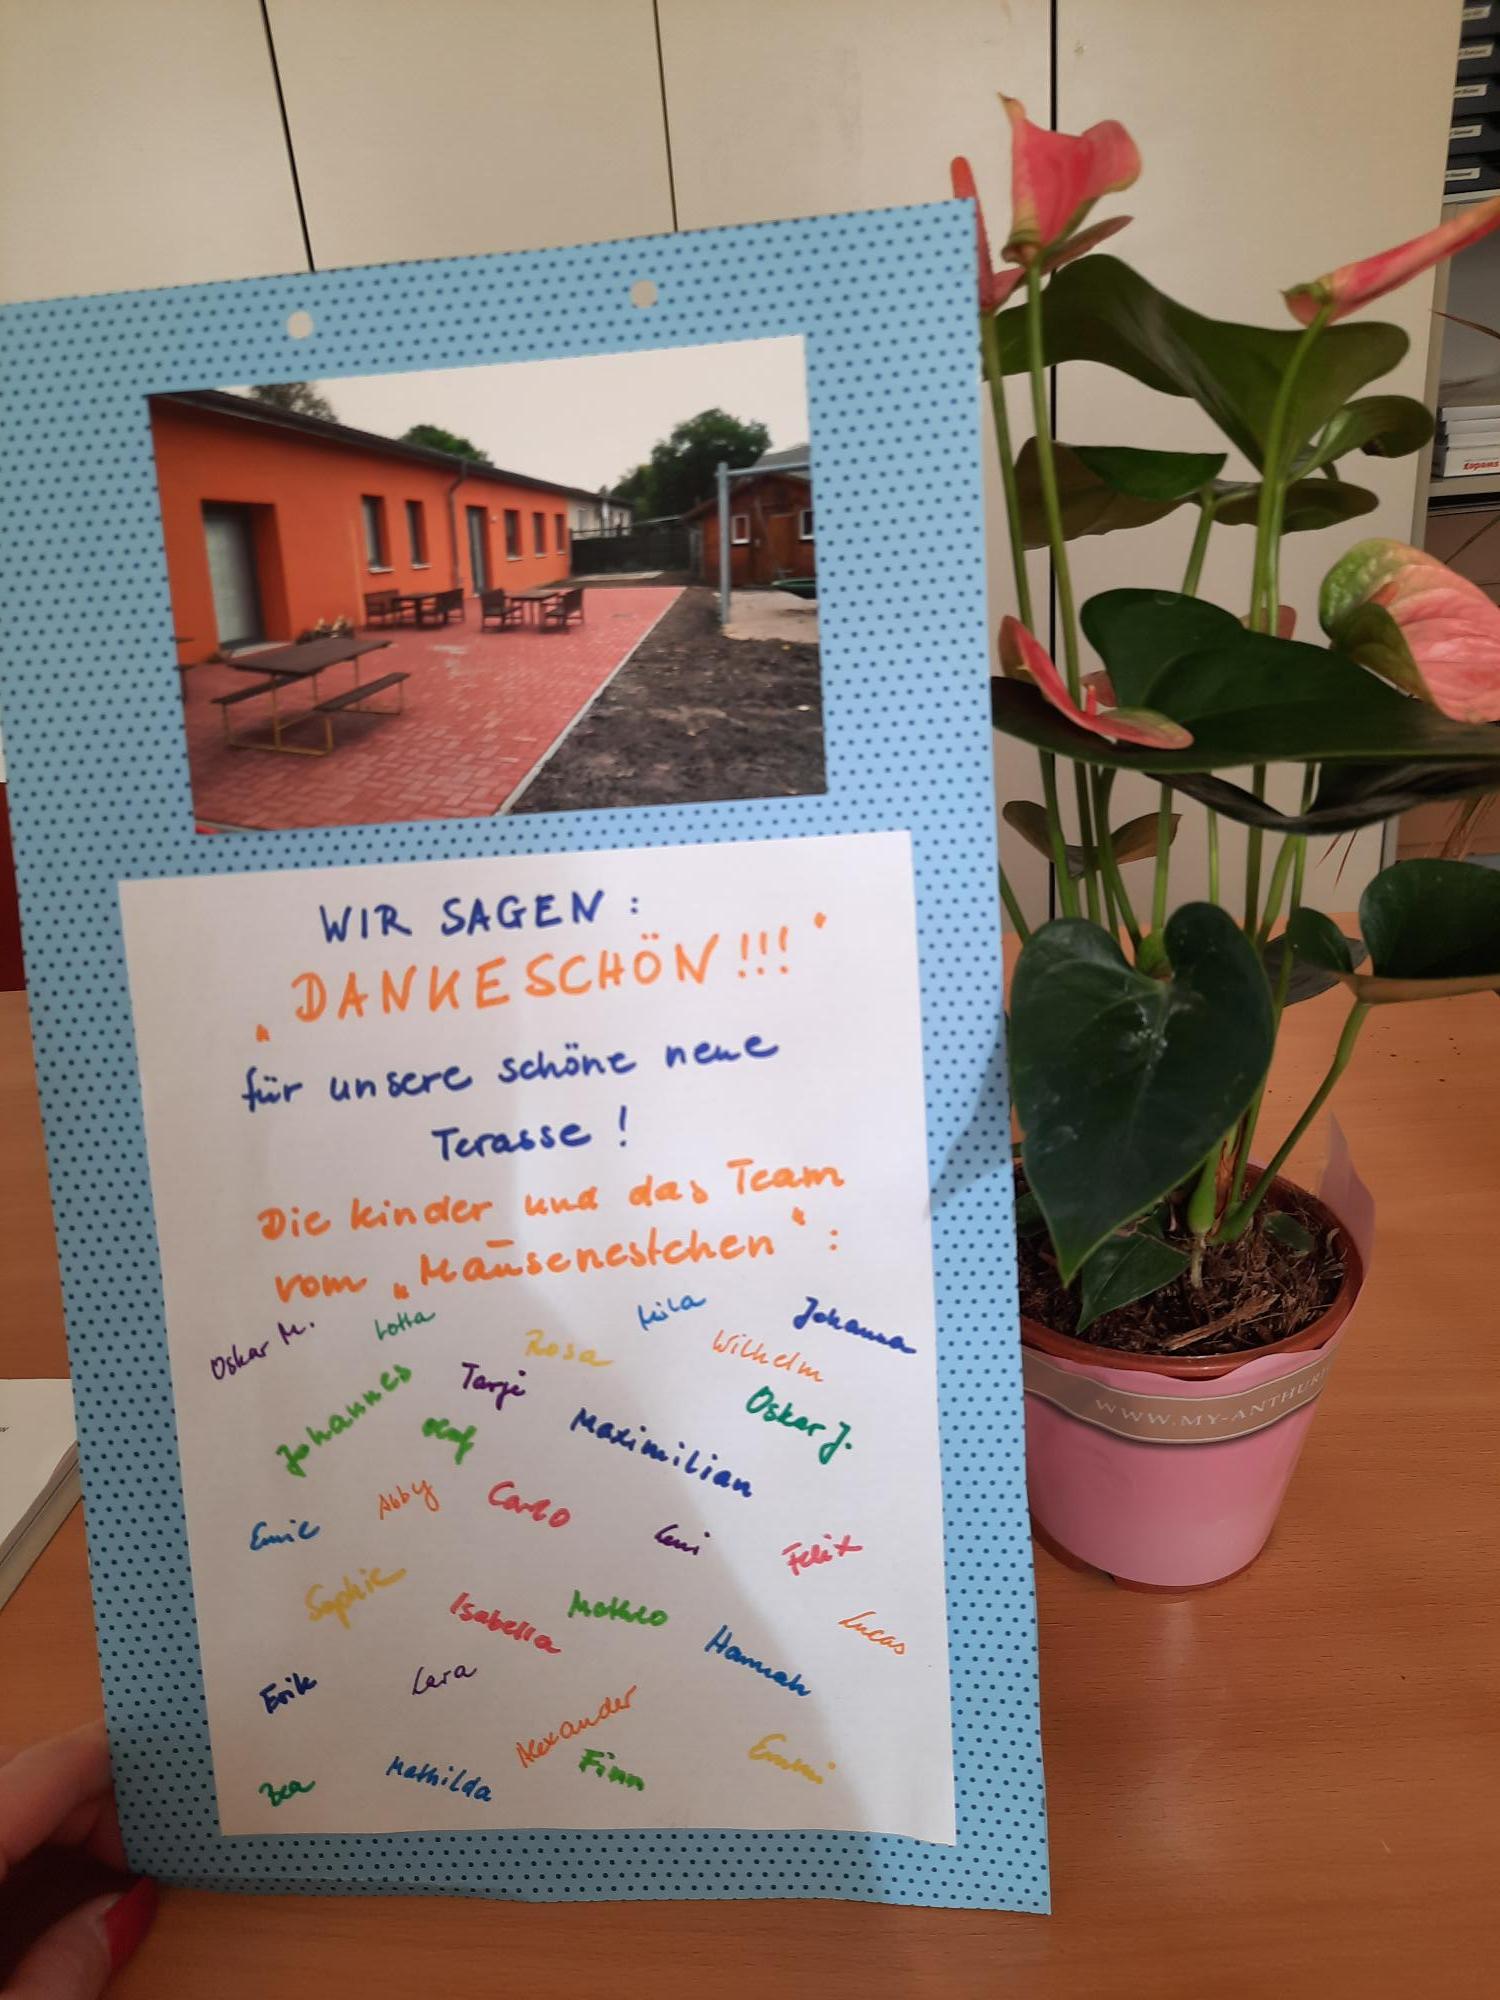 WIR SAGEN:
„DANKESCHÖN!!!"
für unsere schöne neue
Terasse!
Die kinder und das Team
vom „Mäusenestchen":
Oskar M.
Lotta
Mila
Johanna
Rosa
Wilhelm
Johannes
Tarje
Oskar J.
Olaf
Maximilian
Abby
Carlo
Emic
Leni
Felix
Sophie
Isabella
Matheo
Lucas
Hannah
Erik
Lara
Alexander
Emmi
Bea
Mathilda
Finn
WWW.MY-ANTHURI